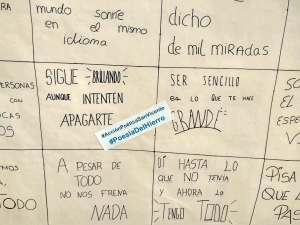 mundo sonríe
en el mismo
idioma
dicho
de mil miradas
PERSONAS
CON
OCAS
OS
SIGUE BRILLANDO
AUNQUE INTENTEN
APAGARTE
SER SENCILLO
es LO QUE TE HACE
GRANDE
SO
EL
ESPE
V
#AcciónPoéticaSanVicente
#PoesíaDelHierro
MOS
A
TODO
A PESAR DE
TODO
NO NOS FRENA
NADA
DÍ HASTA LO
QUE NO TENÍA
Y AHORA LO
TENGO TODO
PISA
QUE L